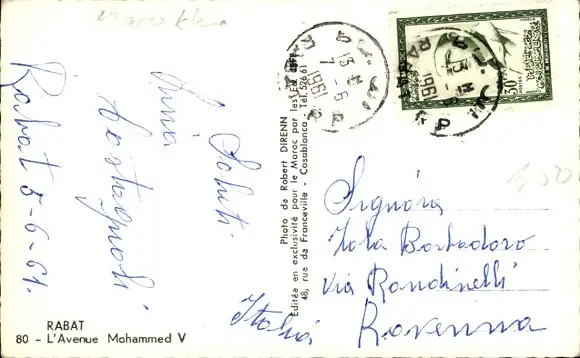 Marokko
Saluti
Lina
Costagnoli
Rabat 5-6-61.
RABAT
80 - L'Avenue Mohammed V
Photo de Robert DIRENN
Editée en exclusivité pour le Maroc par les Ed
48, rue de Franceville - Casablanca - Tél. 526 61
RABAT
1961
30
Signora
Iola Barbadoro
via Rondinelli
Ravenna
Italia
1,50